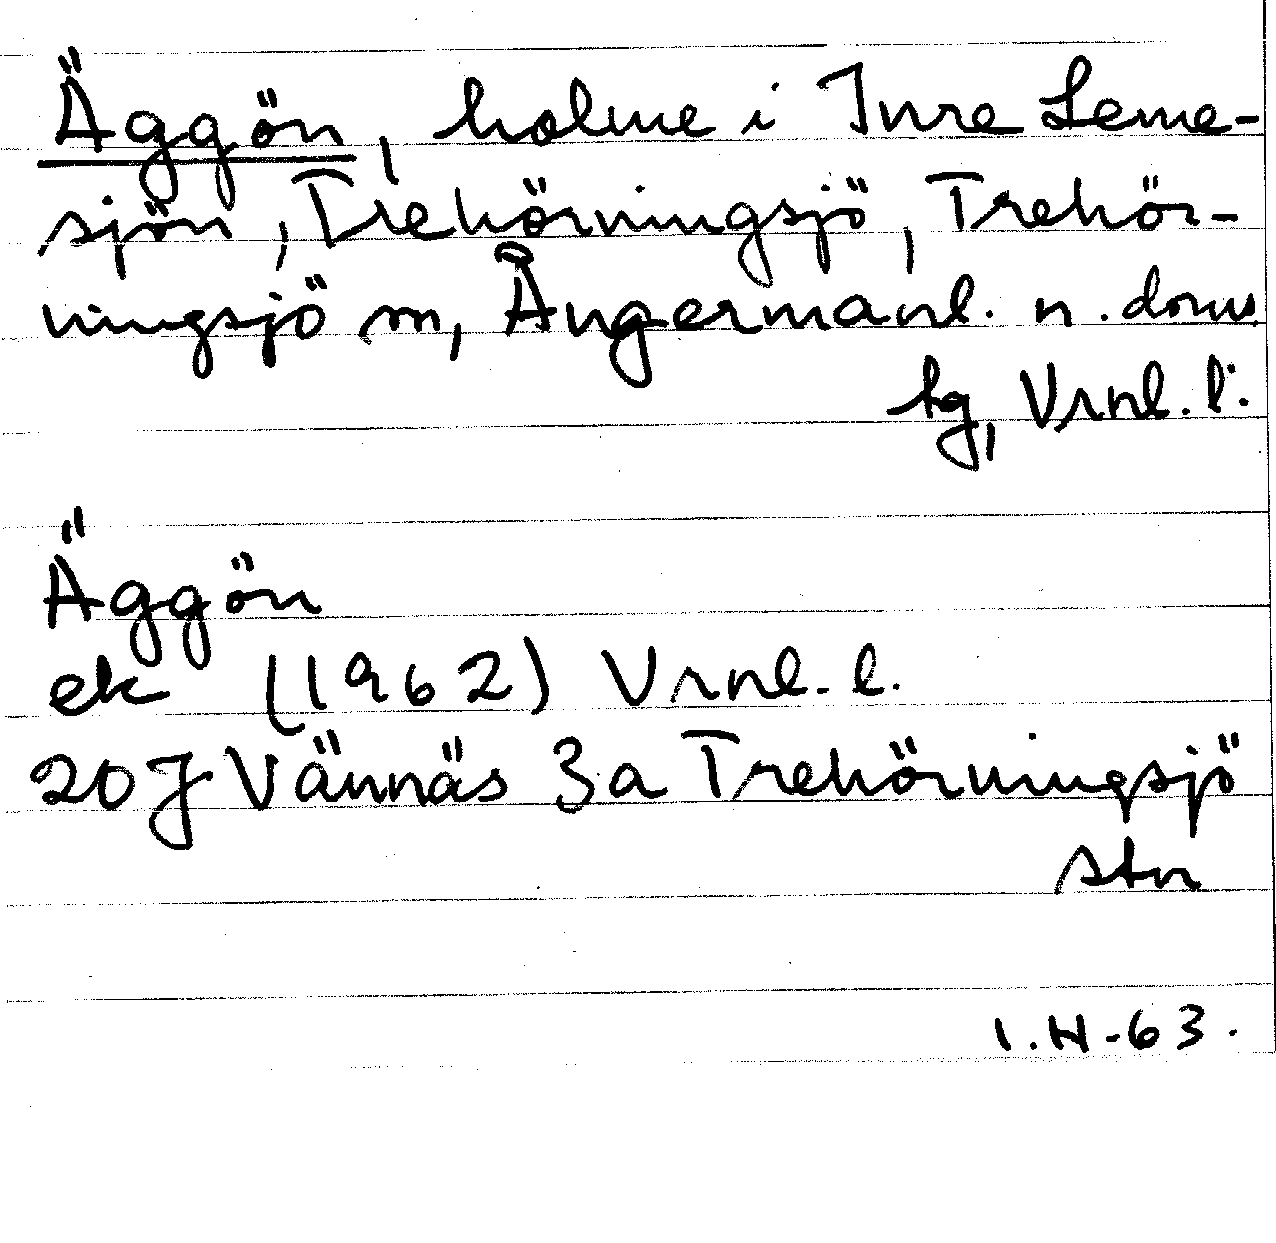 Äggön, holme i Inre Leme-
sjön, Trehörningsjö, Trehör-
ningsjö sn, Ångermanl. n. doms.
hg, Vrnl. l.
Äggön
ek (1962) Vrnl. l.
20J Vännäs 3a Trehörningsjö
stn
I.H-63.